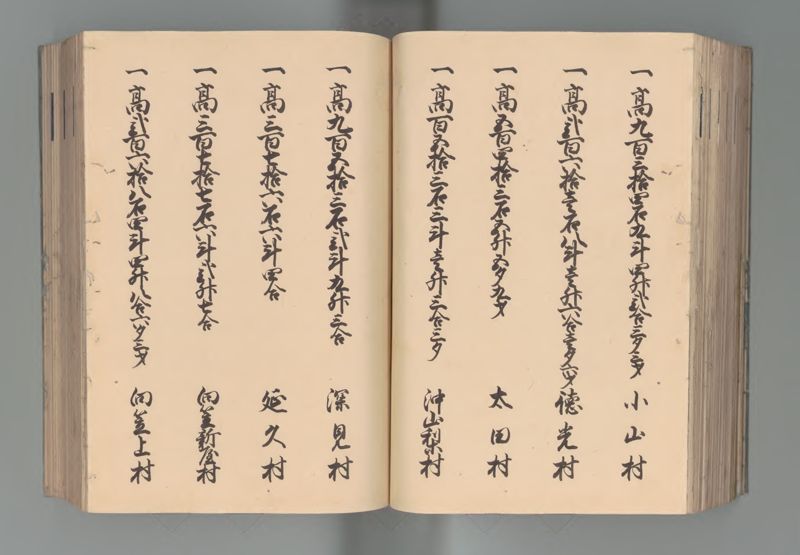 一高九百三拾四石九斗四升弐合三夕三才 小山村
一高弐百六拾壱石八斗壱升六合壱夕六才 徳光村
一高五百四拾三石五升五夕九才 太田村
一高百五拾三石三斗壱升三合三夕 沖山梨村
一高九百五拾三石弐斗九升三合 深見村
一高三百七拾六石六斗四合 延久村
一高三百七拾七石六斗弐升七合 向笠新屋村
一高弐百六拾八石四斗四升八合六夕三才 向笠上村